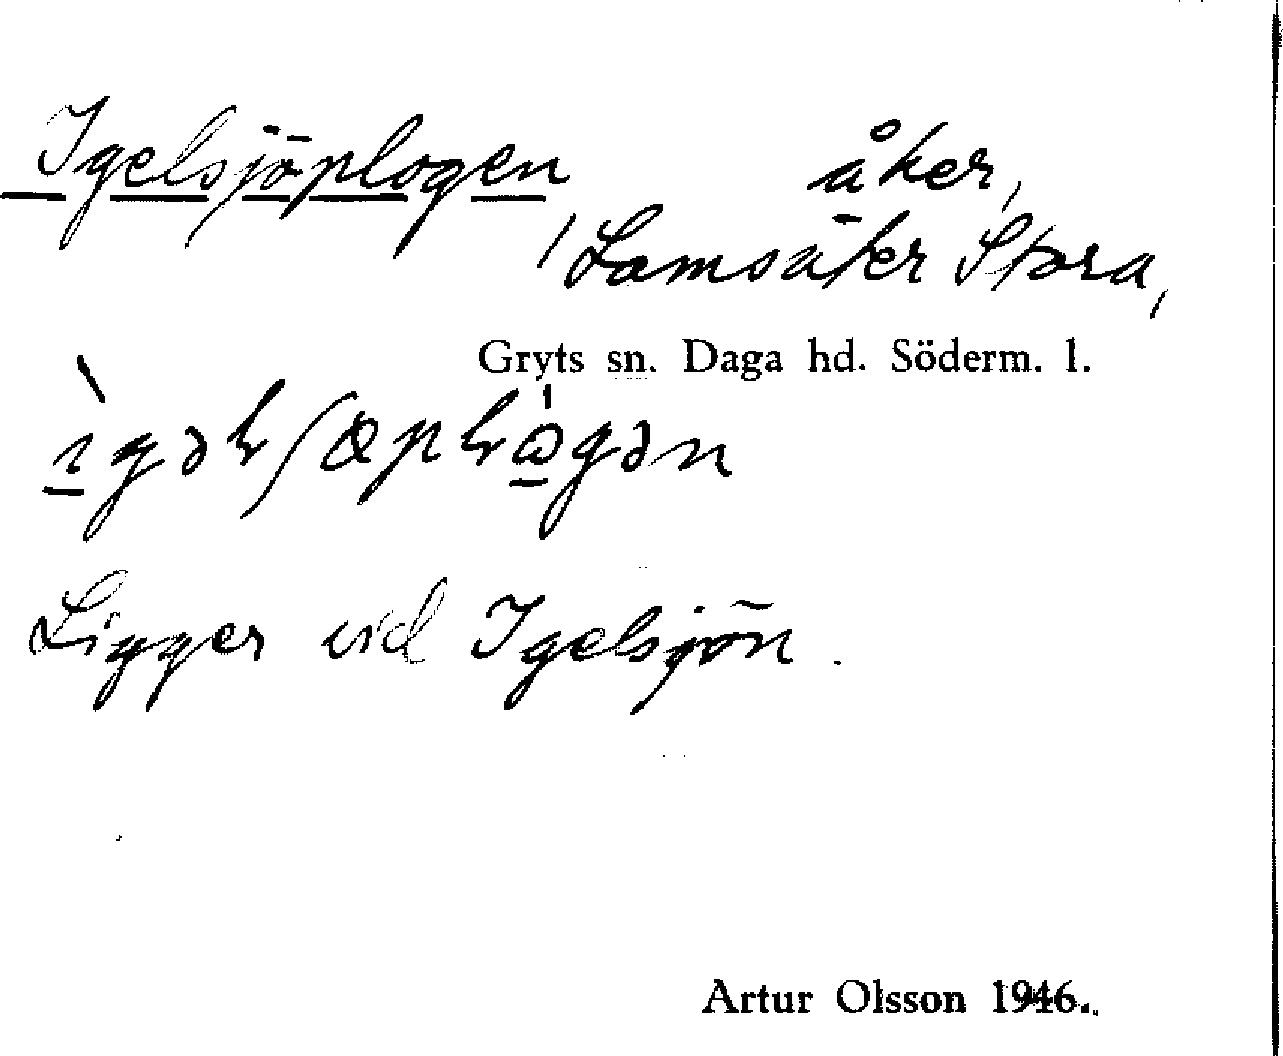 Igelsjöplogen åker,
Lamsäter Stora,
Gryts sn. Daga hd. Söderm. l.
Ligger vid Igelsjön.
Artur Olsson 1946.